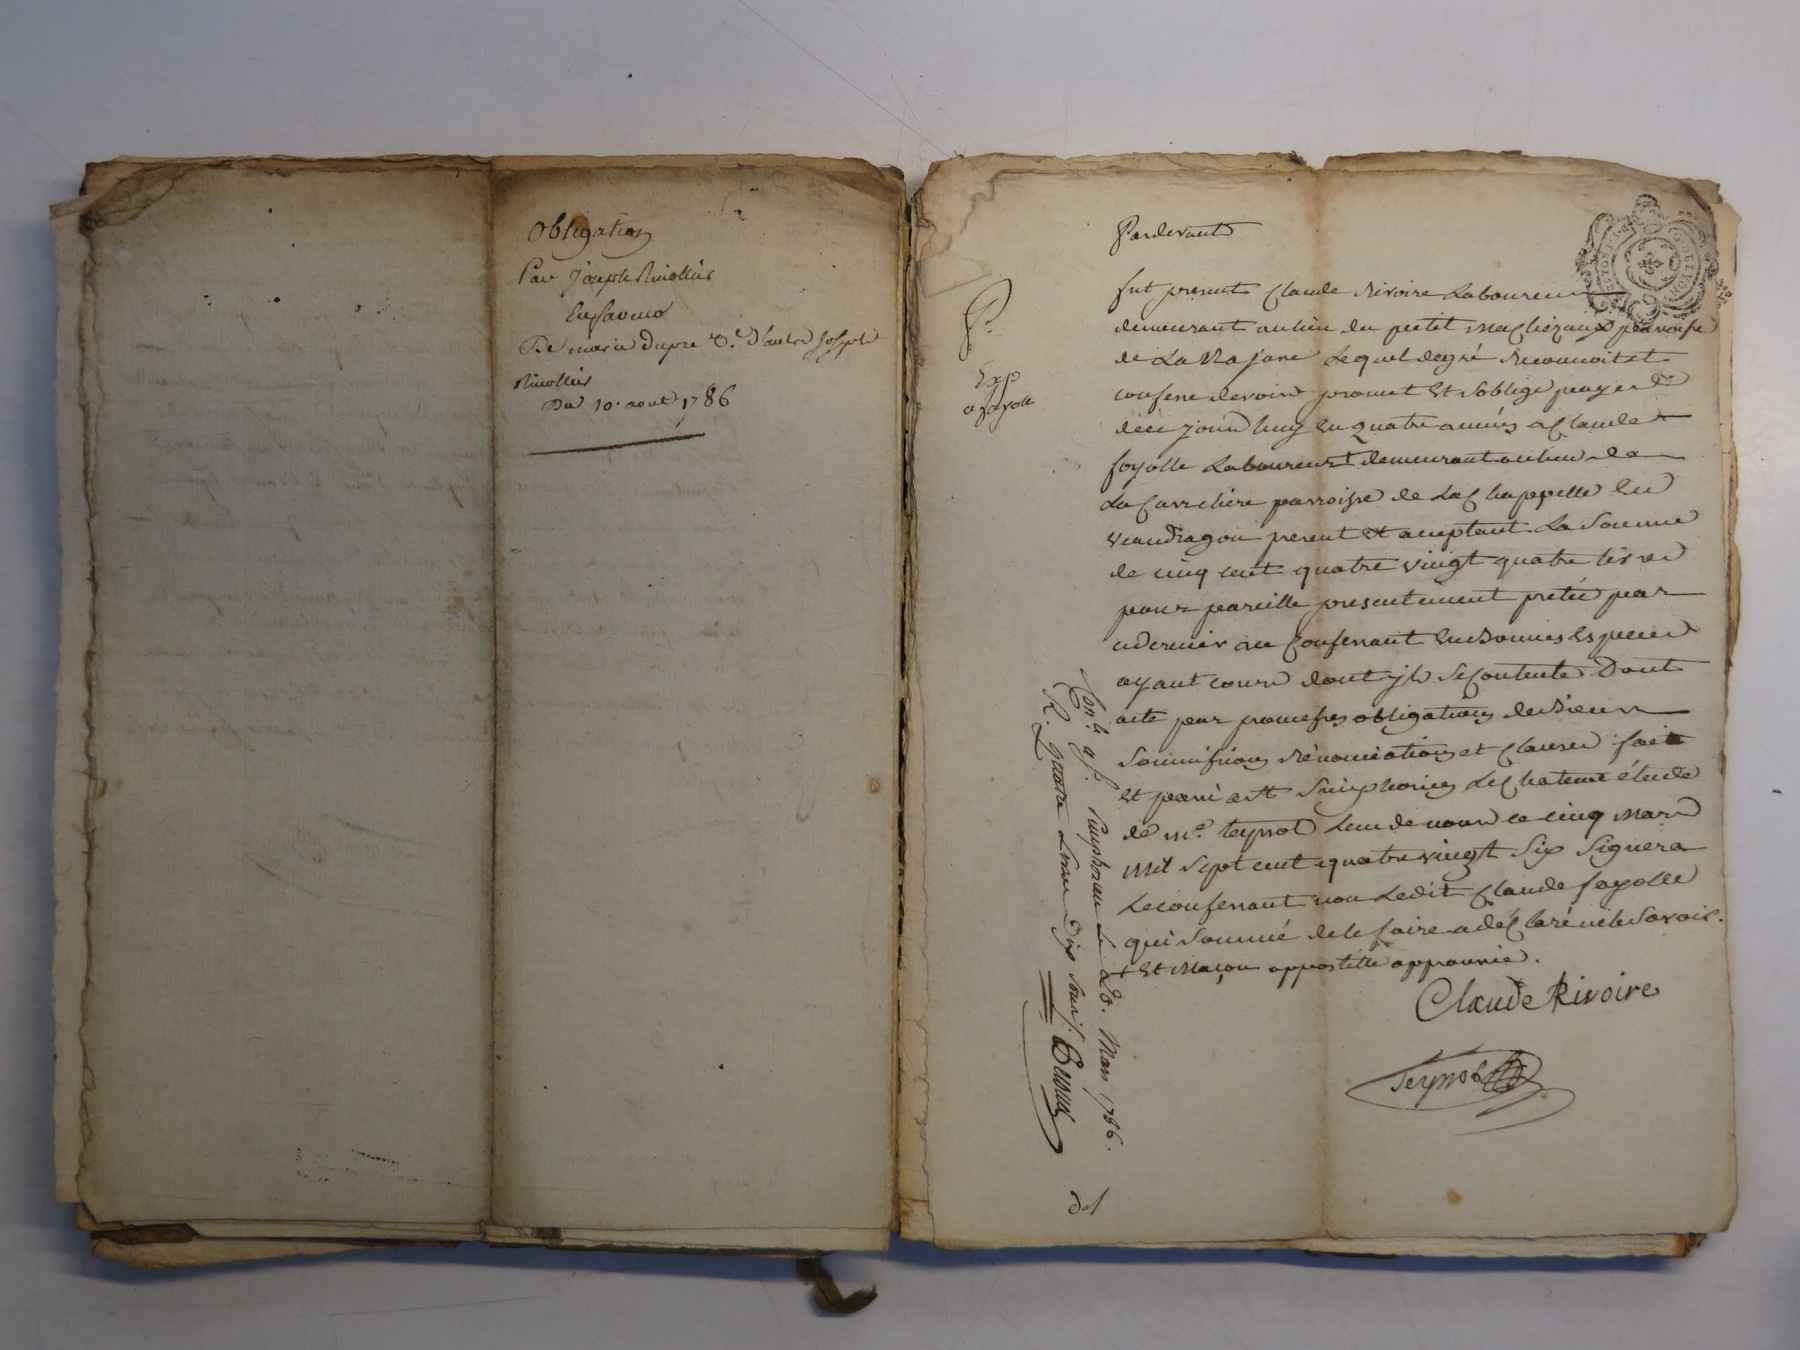 Obligation
Par Joseph Rivollier
En faveur
De marie dupré v.e d'autre Joseph
Rivollier
Du 10. aout 1786
Pardevant
fut present Claude Rivoire Laboureur
demeurant au lieu du petit paroisse
de La Rajasse Lequel de gré reconnoit et
confesse devoir promet Et s'oblige payer
d'icy jourd'huy En quatre années a Claude
fayolle Laboureur † demeurant au lieu de
La paroisse de La Chappelle En
veaudragon present Et acceptant La Somme
de cinq cent quatre vingt quatre livres
pour pareille presentement prêtée par
ce dernier au Confessant En bonnes Especes
ayant cours dont jl Se Contente Dont
acte par promesses obligations de biens
Soumissions rénonciations et Clauses fait
Et passé a St Simphorien Le Chateau étude
de M.e teyssot L'un de nous ce cinq Mars
mil Sept cent quatre vingt Six Signera
Le confessant non Ledit Claude fayolle
qui Sommé de le faire a déClaré ne le Savoir.
† Et Maçon appostille approuvée.
Claude Rivoire
Teyssot
Exp
a fayolle
Con.lé a St. Simphorien Le 20. Mars 1786.
R. quatre Livres Dix Sous